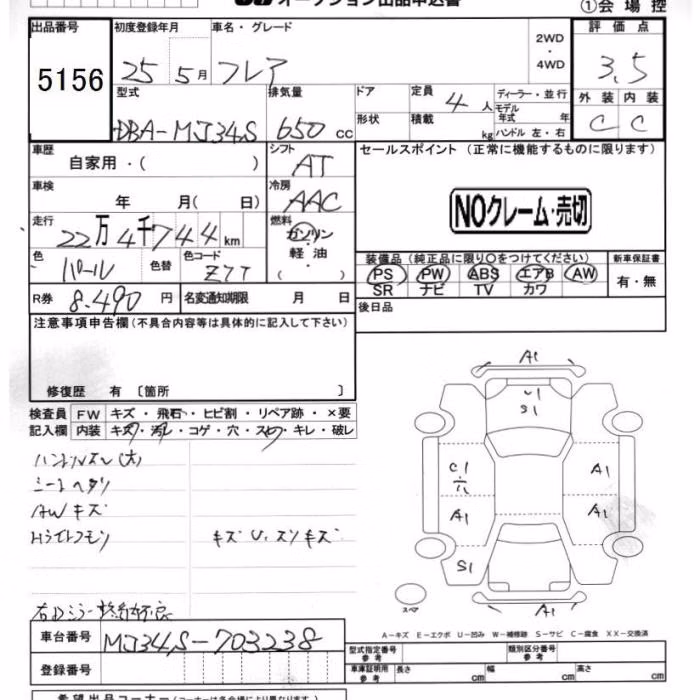 オークション出品申込書
①会場控
出品番号 初度登録年月 車名・グレード 2WD・4WD 評価点
5156 25 5月 フレア 3.5
型式 排気量 ドア 定員 4人 ディーラー・並行 外装 内装
DBA-MJ34S 650cc 形状 積載 kg モデル年式 年 C C
ハンドル 左・右
車歴 自家用・( ) シフト AT セールスポイント (正常に機能するものに限ります)
車検 年 月( 日) 冷房 AAC
NOクレーム・売切
走行 22万4千744km 燃料 ガソリン・軽油・( )
色 パール 色替 色コード Z7T 装備品 (純正品に限り○をつけてください) 新車保証書
PS PW ABS エアB AW 有・無
SR ナビ TV カワ
R券 8.490円 名変通知期限 月 日 後日品
注意事項申告欄(不具合内容等は具体的に記入して下さい)
修復歴 有 〔箇所 〕
検査員 FW キズ・飛石・ヒビ割・リペア跡・×要
記入欄 内装 キズ・汚レ・コゲ・穴・スレ・キレ・破レ
ハンドルズレ(大)
シートヘタリ
AWキズ
Hライトクモリ キズ U.スリキズ
右Dミラー
A1
U1
S1
C1 穴 A1
A1 A1
S1
スペア A1
A-キズ E-エクボ U-凹み W-補修跡 S-サビ C-腐食 XX-交換済
車台番号 MJ34S-703238 型式指定番号 参考 類別区分番号 参考
登録番号 車庫証明用 参考 長さ cm 幅 cm 高さ cm
希望出品コーナー(コーナーは各会場により異なります)